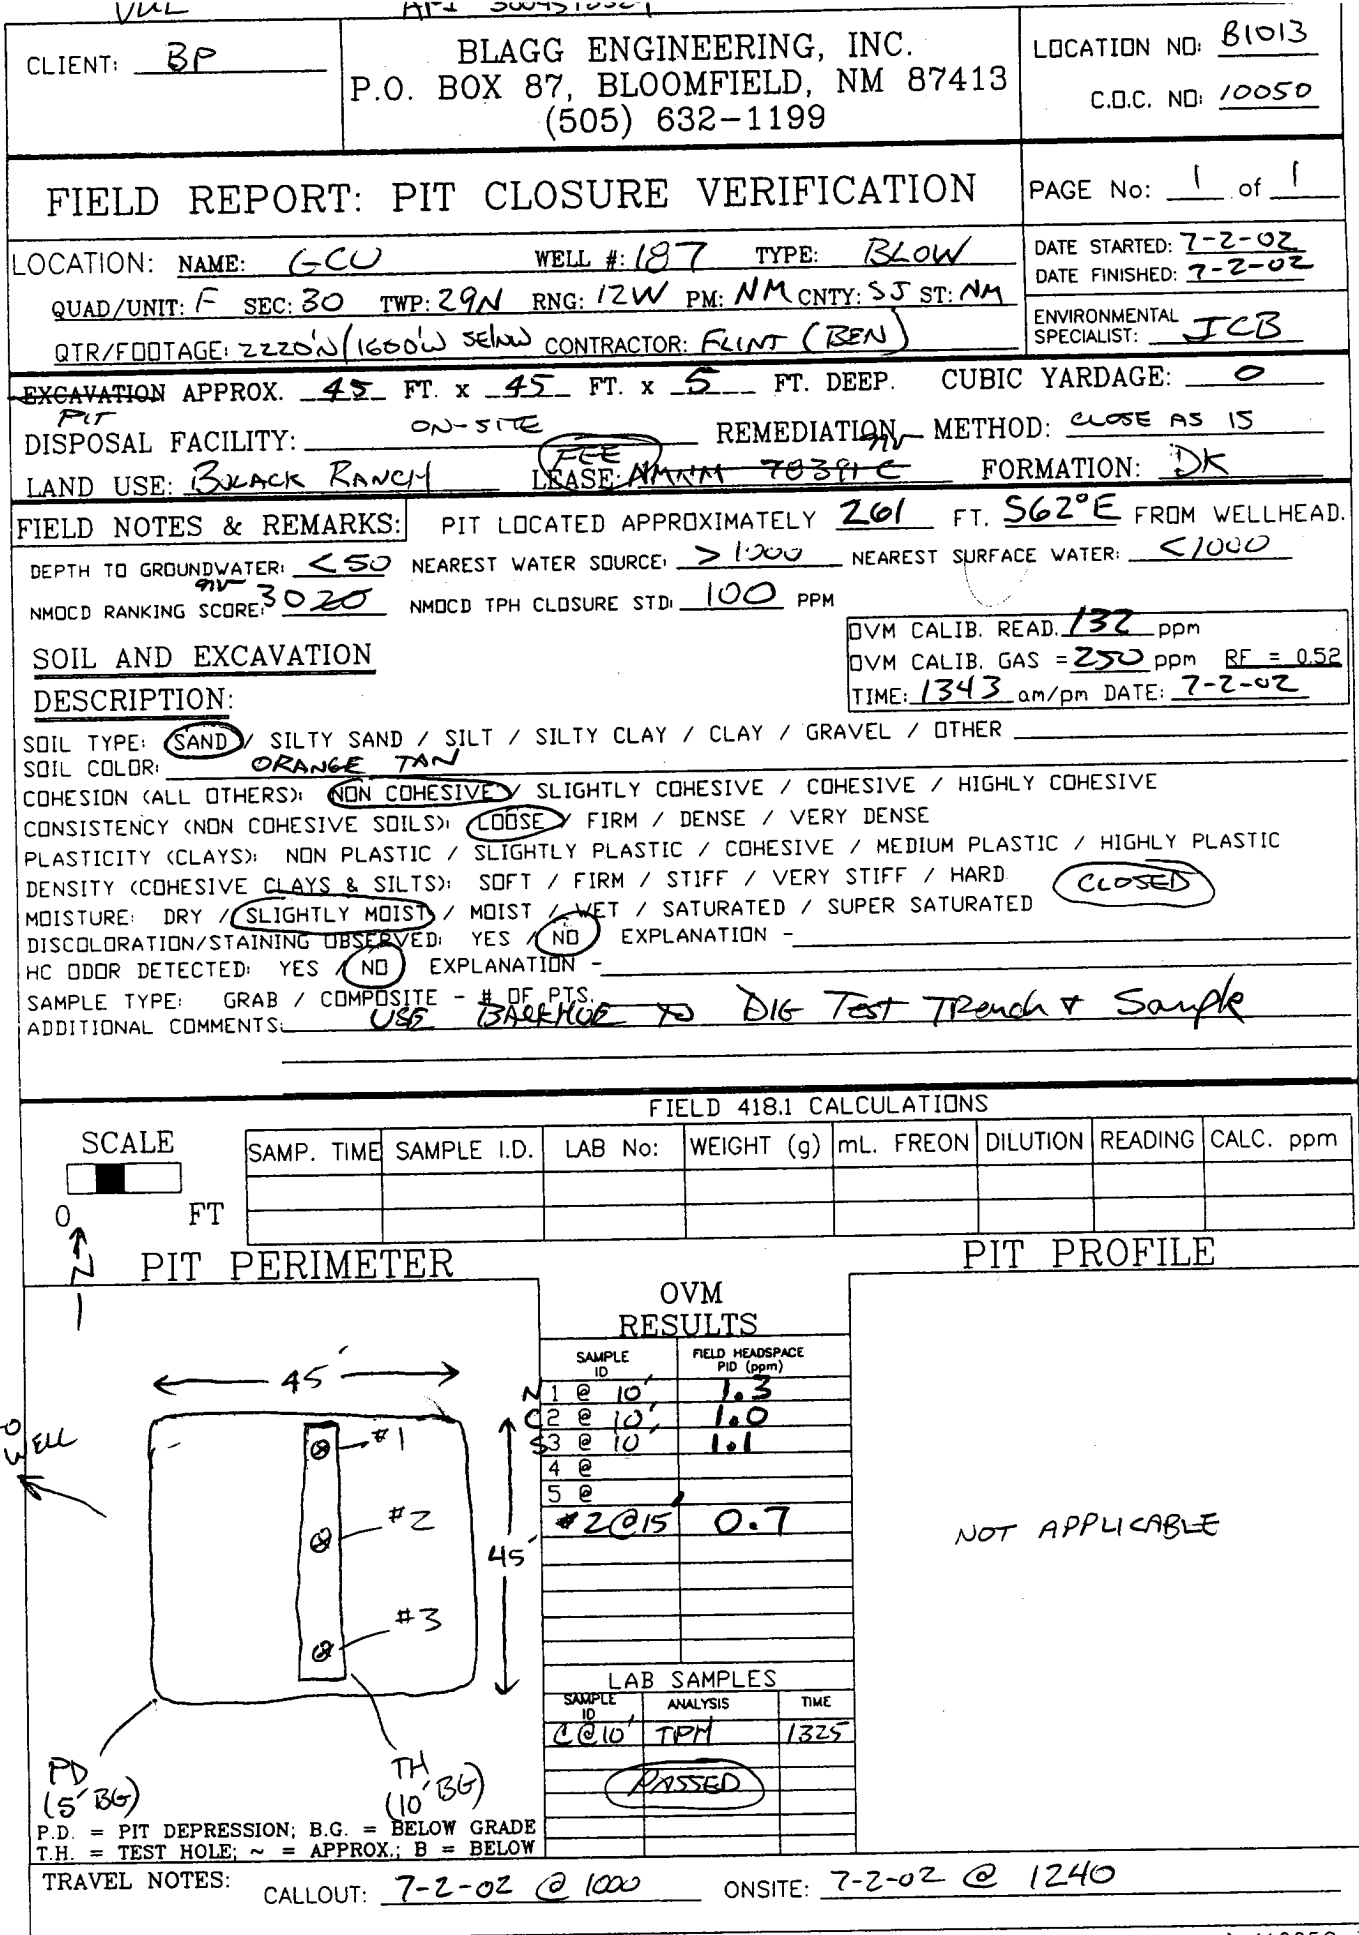 CLIENT: BP
BLAGG ENGINEERING, INC.
P.O. BOX 87, BLOOMFIELD, NM 87413
(505) 632-1199
LOCATION NO: B1013
C.O.C. NO: 10050
FIELD REPORT: PIT CLOSURE VERIFICATION
PAGE No: 1 of 1
LOCATION: NAME: GCU WELL #: 187 TYPE: BLOW
QUAD/UNIT: F SEC: 30 TWP: 29N RNG: 12W PM: NM CNTY: SJ ST: NM
QTR/FOOTAGE: 2220'N/1600'W SE/NW CONTRACTOR: FLINT (BEN)
DATE STARTED: 7-2-02
DATE FINISHED: 7-2-02
ENVIRONMENTAL
SPECIALIST: JCB
EXCAVATION APPROX. 45 FT. x 45 FT. x 5 FT. DEEP. CUBIC YARDAGE: 0
PIT
DISPOSAL FACILITY: ON-SITE REMEDIATION METHOD: CLOSE AS IS
LAND USE: BLACK RANCH LEASE: FEE FORMATION: DK
FIELD NOTES & REMARKS: PIT LOCATED APPROXIMATELY 261 FT. S62°E FROM WELLHEAD.
DEPTH TO GROUNDWATER: <50 NEAREST WATER SOURCE: >1000 NEAREST SURFACE WATER: <1000
NMOCD RANKING SCORE: 30 20 NMOCD TPH CLOSURE STD: 100 PPM
OVM CALIB. READ. 132 ppm
OVM CALIB. GAS = 250 ppm RF = 0.52
TIME: 1343 am/pm DATE: 7-2-02
SOIL AND EXCAVATION
DESCRIPTION:
SOIL TYPE: SAND / SILTY SAND / SILT / SILTY CLAY / CLAY / GRAVEL / OTHER
SOIL COLOR: ORANGE TAN
COHESION (ALL OTHERS): NON COHESIVE / SLIGHTLY COHESIVE / COHESIVE / HIGHLY COHESIVE
CONSISTENCY (NON COHESIVE SOILS): LOOSE / FIRM / DENSE / VERY DENSE
PLASTICITY (CLAYS): NON PLASTIC / SLIGHTLY PLASTIC / COHESIVE / MEDIUM PLASTIC / HIGHLY PLASTIC
DENSITY (COHESIVE CLAYS & SILTS): SOFT / FIRM / STIFF / VERY STIFF / HARD CLOSED
MOISTURE: DRY / SLIGHTLY MOIST / MOIST / WET / SATURATED / SUPER SATURATED
DISCOLORATION/STAINING OBSERVED: YES / NO EXPLANATION -
HC ODOR DETECTED: YES / NO EXPLANATION -
SAMPLE TYPE: GRAB / COMPOSITE - # OF PTS.
ADDITIONAL COMMENTS: USE BACKHOE TO DIG Test Trench & Sample
FIELD 418.1 CALCULATIONS
SCALE
0 FT
SAMP. TIME SAMPLE I.D. LAB No: WEIGHT (g) mL. FREON DILUTION READING CALC. ppm
N
PIT PERIMETER
PIT PROFILE
OVM
RESULTS
SAMPLE ID FIELD HEADSPACE PID (ppm)
N 1 @ 10' 1.3
C 2 @ 10' 1.0
S 3 @ 10' 1.1
4 @
5 @
#2@15' 0.7
45'
TO WELL
#1
#2
45'
#3
PD
(5' BG)
TH
(10' BG)
NOT APPLICABLE
LAB SAMPLES
SAMPLE ID ANALYSIS TIME
C@10' TPH 1325
PASSED
P.D. = PIT DEPRESSION; B.G. = BELOW GRADE
T.H. = TEST HOLE; ~ = APPROX.; B = BELOW
TRAVEL NOTES: CALLOUT: 7-2-02 @ 1000 ONSITE: 7-2-02 @ 1240